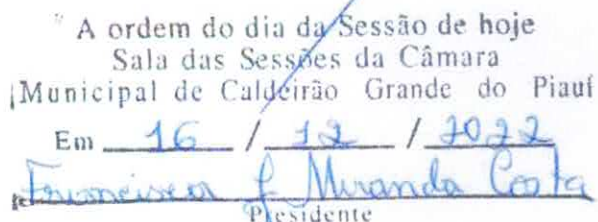 A ordem do dia da Sessão de hoje
Sala das Sessões da Câmara
Municipal de Caldeirão Grande do Piauí
Em 16 / 12 / 2022
Francisca f Miranda Costa
Presidente